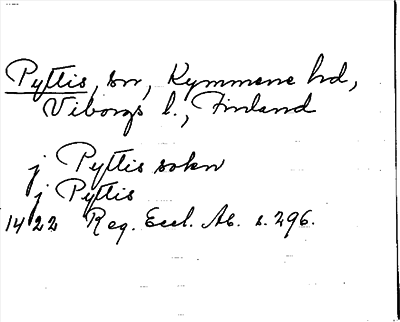 Pyttis, sn, Kymmene hd,
Viborgs l., Finland
j Pyttis sokn
j Pyttis
1422 Reg. Eccl. Ab. s. 296.